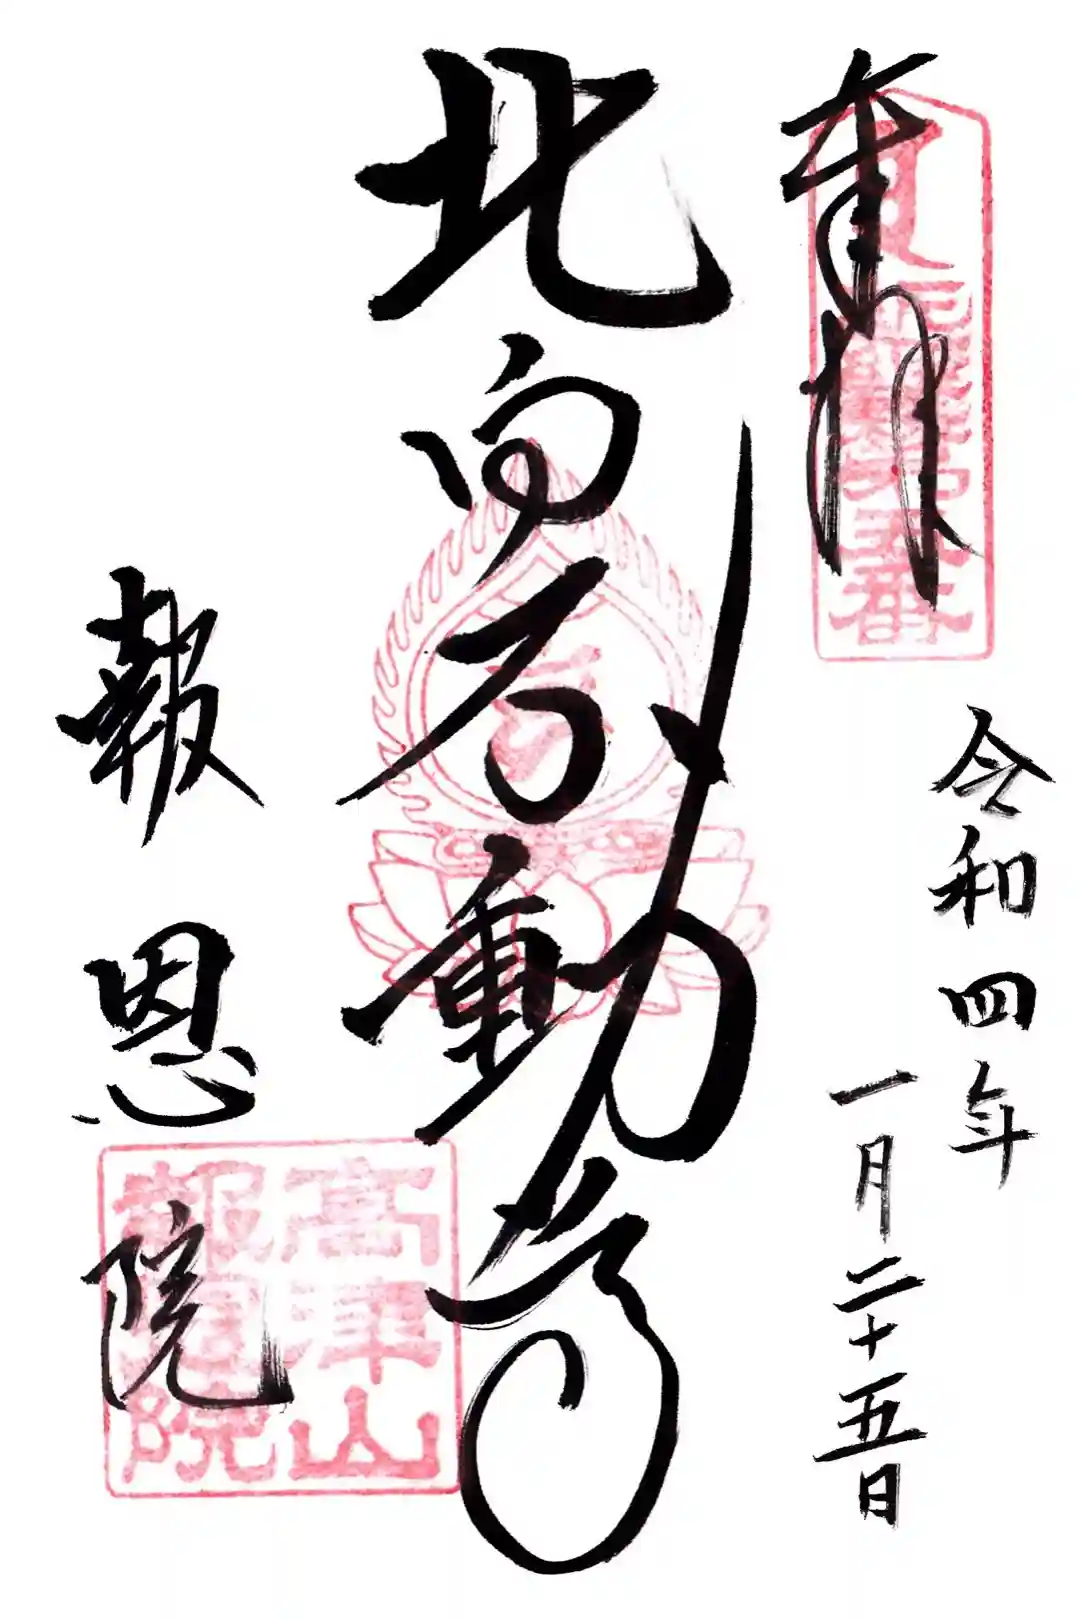 奉拝
令和四年
一月二十五日
北向不動尊
報恩院
高津山
報恩院